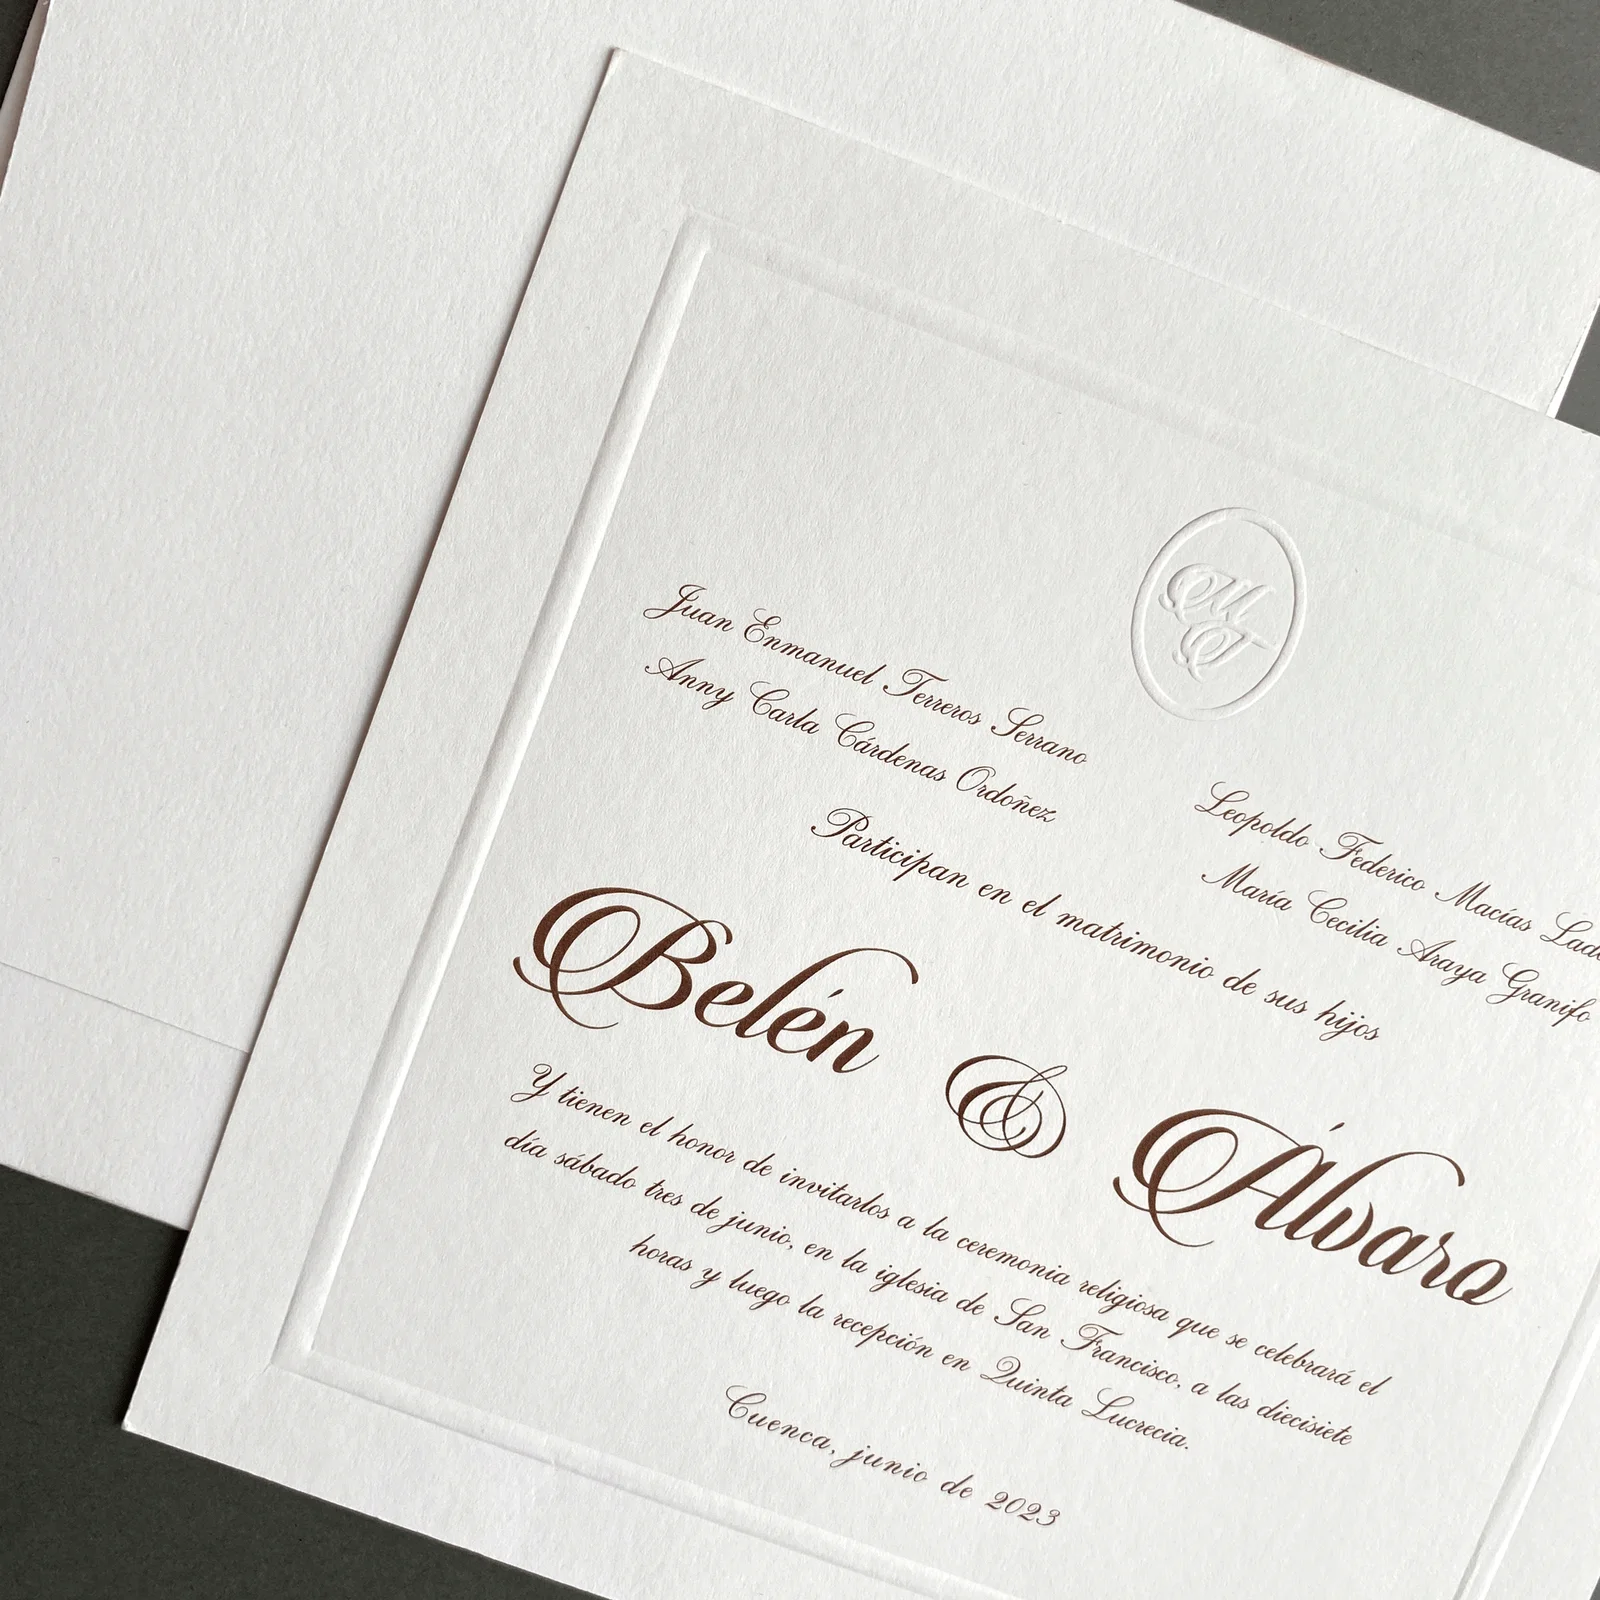 M
T
Juan Enmanuel Terreros Serrano
Anny Carla Cárdenas Ordoñez
Leopoldo Federico Macías
María Cecilia Araya Granifo
Participan en el matrimonio de sus hijos
Belén & Álvaro
Y tienen el honor de invitarlos a la ceremonia religiosa que se celebrará el
día sábado tres de junio, en la iglesia de San Francisco, a las diecisiete
horas y luego la recepción en Quinta Lucrecia.
Cuenca, junio de 2023